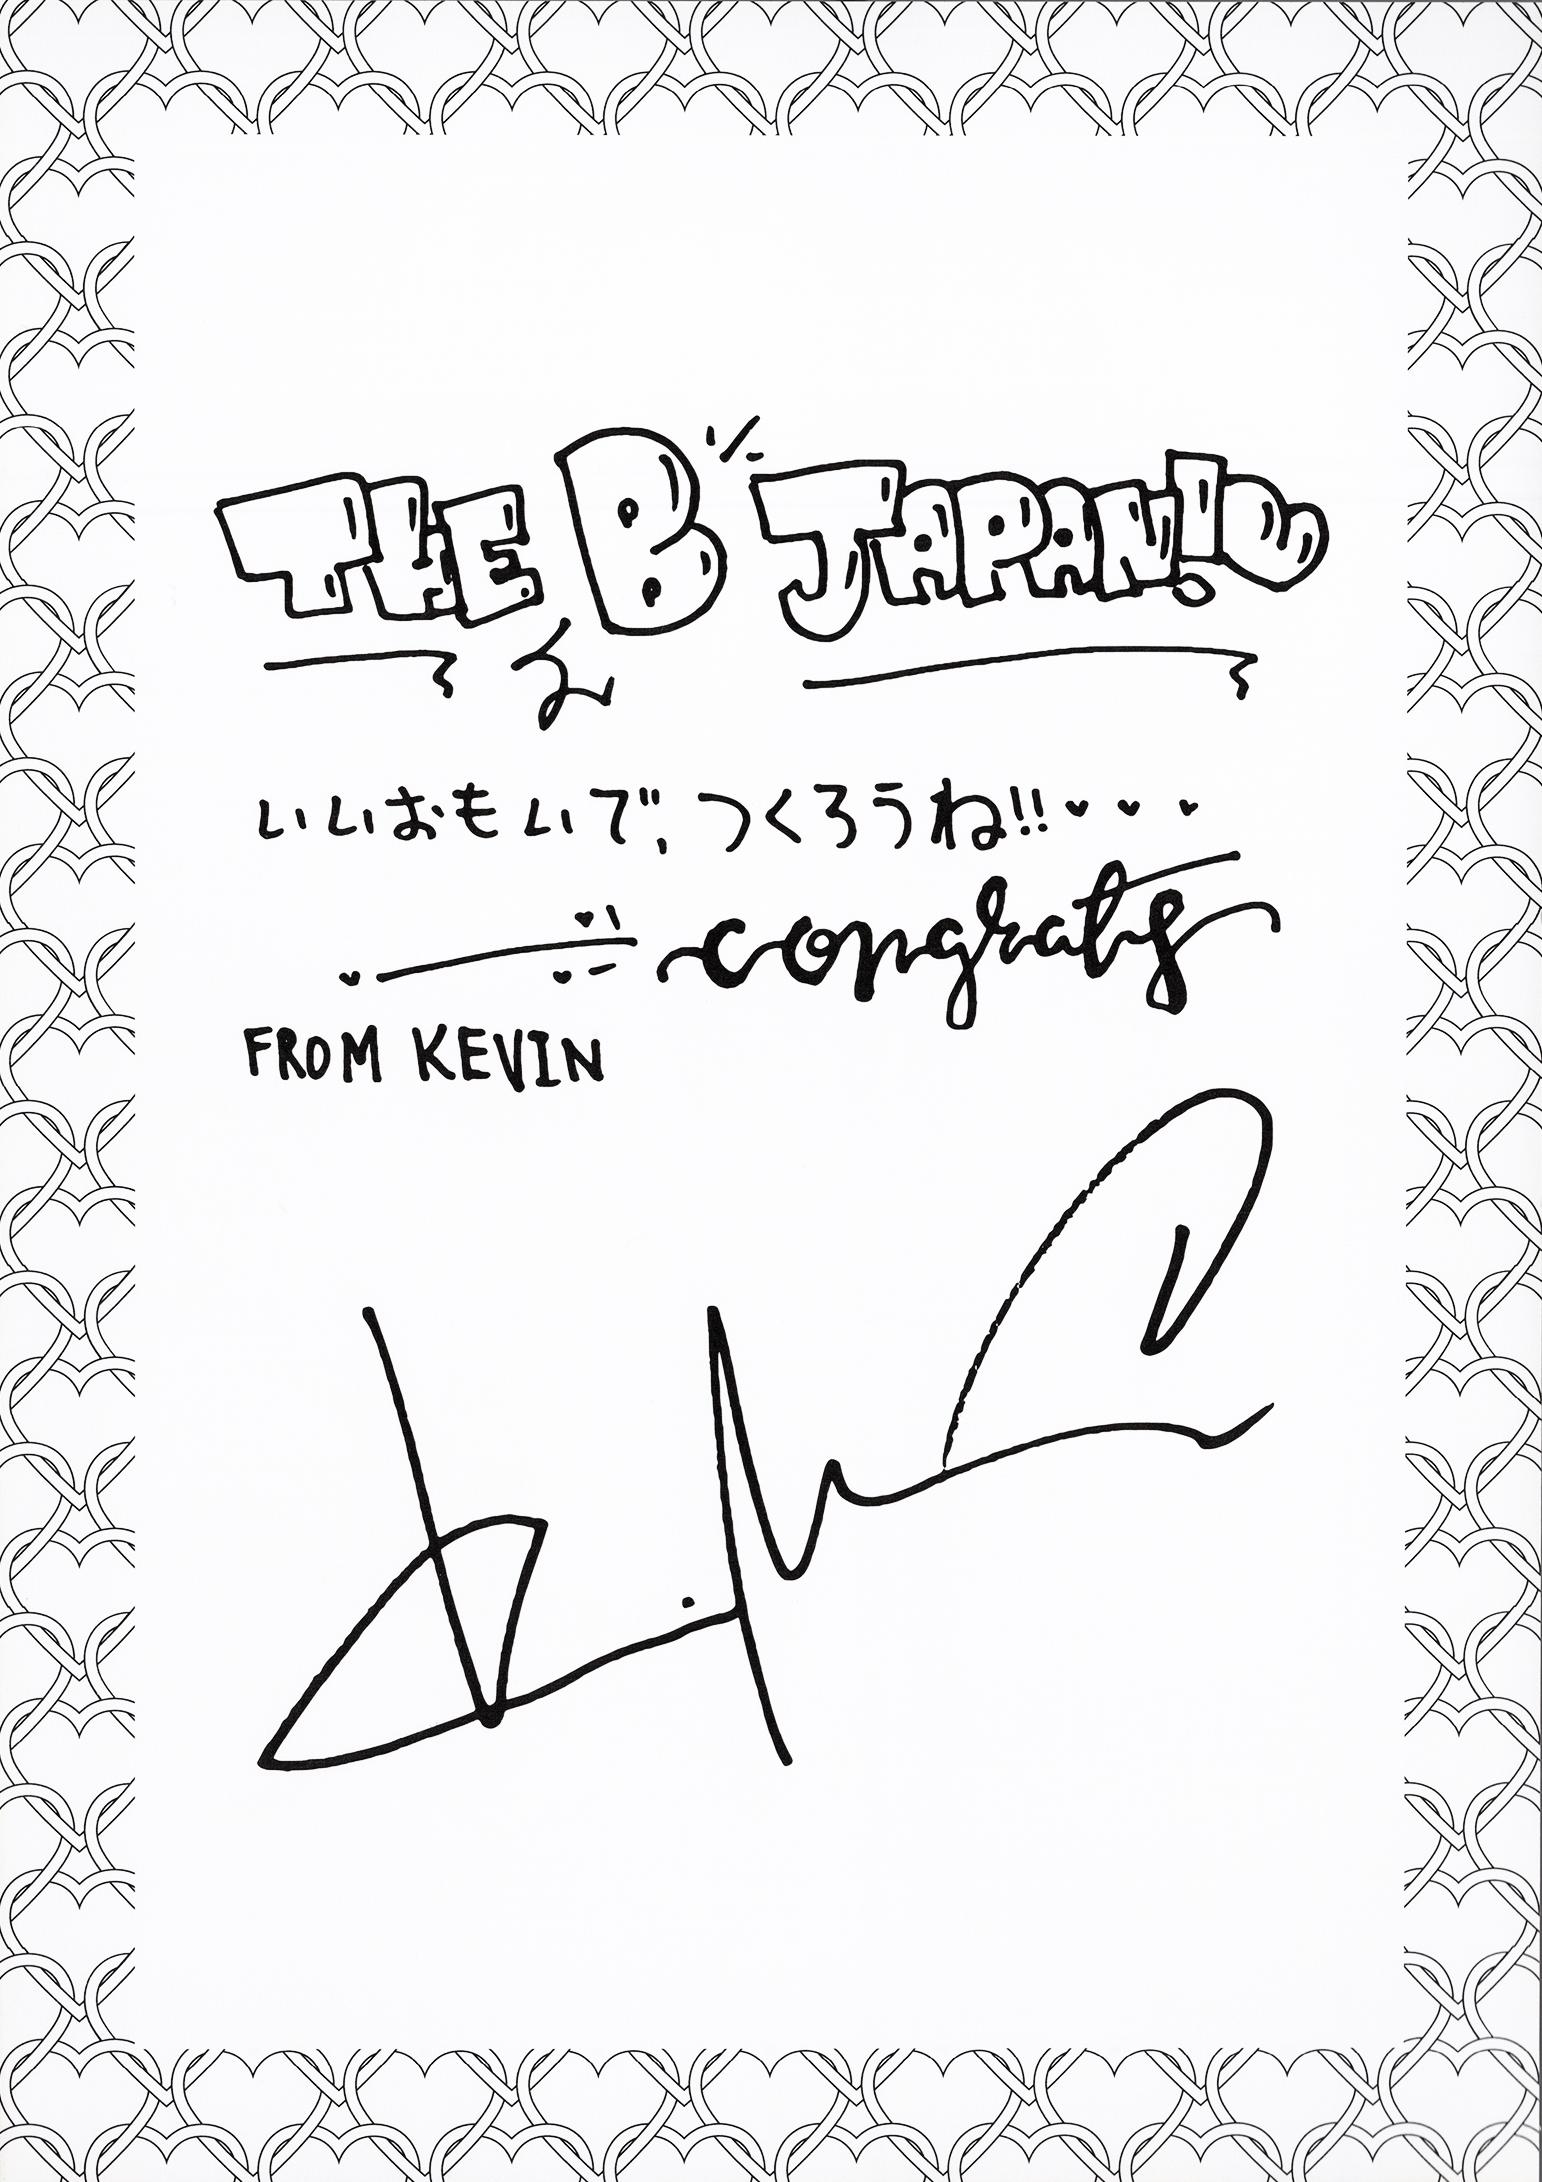 THE B JAPAN!
いいおもいで、つくろうね!!
congrats
FROM KEVIN